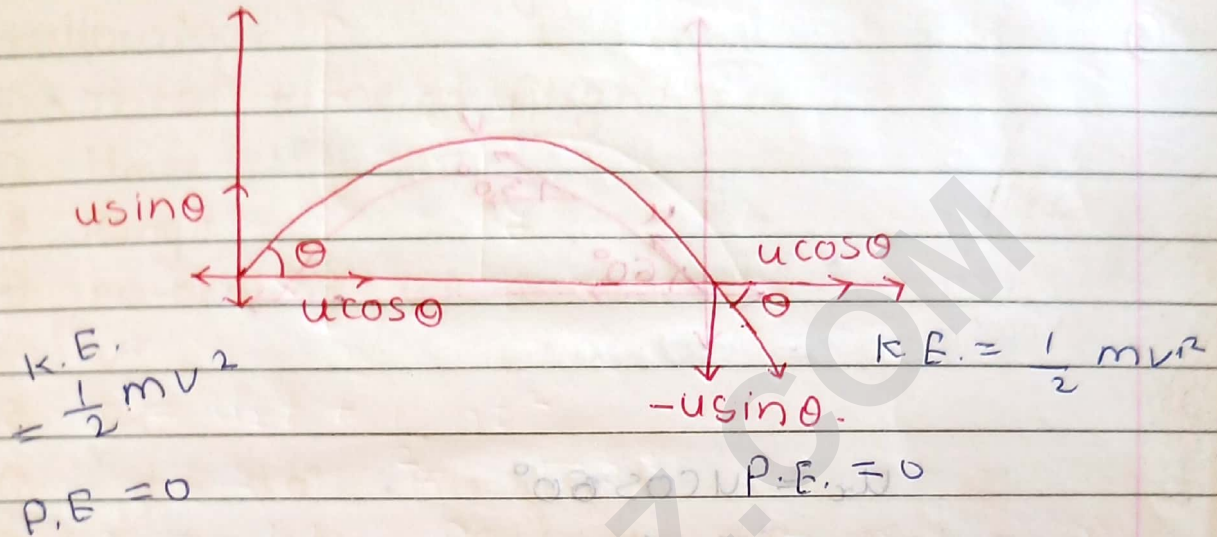 usinθ
θ
ucosθ
ucosθ
θ
-usinθ.
K.E.
= 1/2 mv²
P.E = 0
K E. = 1/2 mv²
P.E. = 0
Z.COM